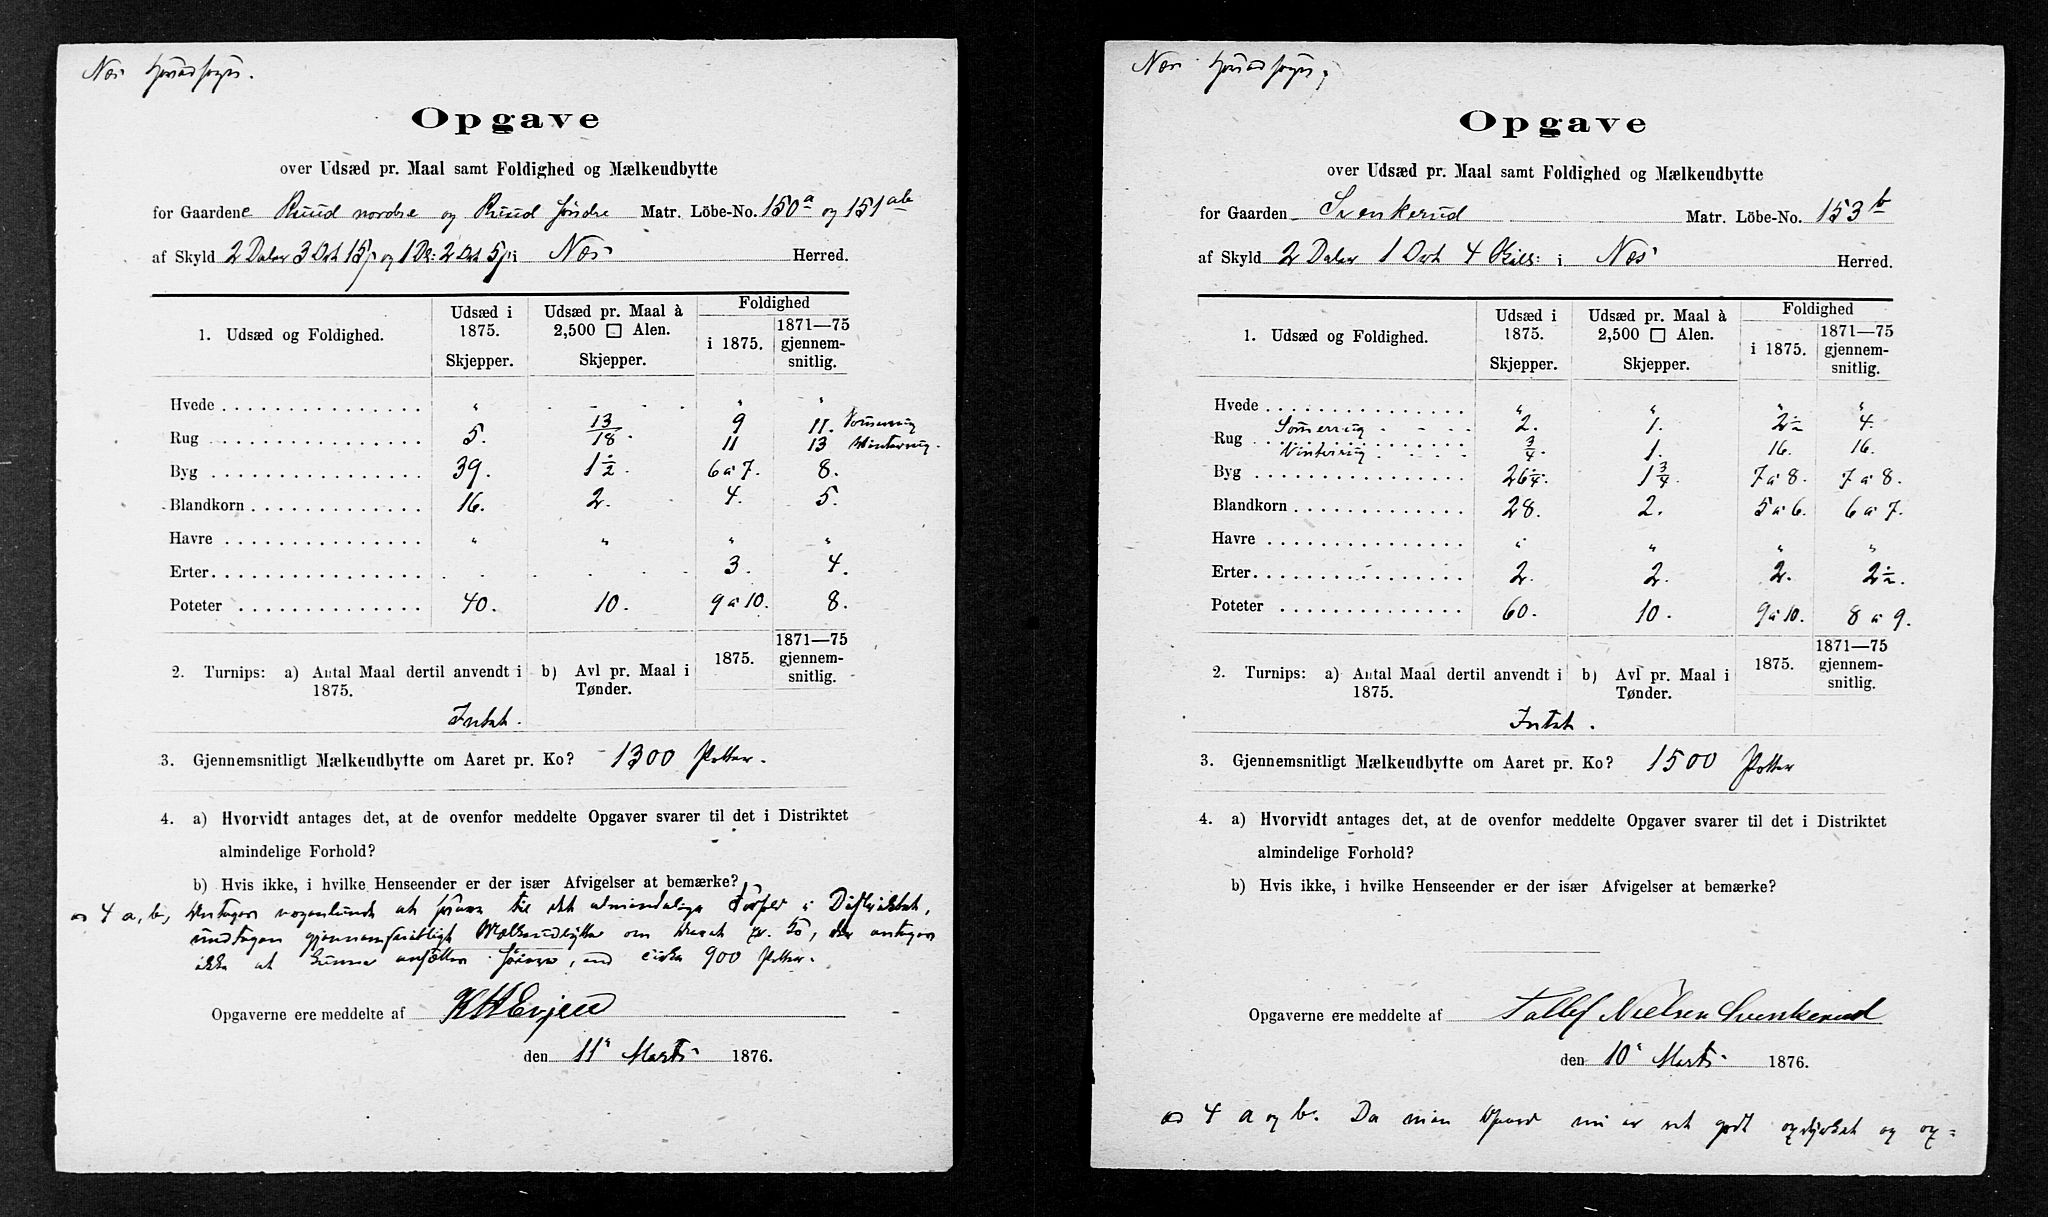 Næs Hovedsogn.
Opgave
over Udsæd pr. Maal samt Foldighed og Mælkeudbytte
for Gaardene Ruud nordre og Ruud søndre Matr. Löbe-No. 150a og 151ab
af Skyld 2 Daler 3 Ort 15 s og 1 Dl: 2 Ort 5 s i Næs Herred.
1. Udsæd og Foldighed.
Udsæd i 1875. Skjepper.
Udsæd pr. Maal à 2,500 □ Alen. Skjepper.
Foldighed
i 1875.
1871—75 gjennem-snitlig.
Hvede " " "
Rug 5. 13/18. 9 11. Sommerrug
11 13 Vinterrug.
Byg 39. 1 1/2. 6 a 7. 8.
Blandkorn 16. 2. 4. 5.
Havre " " " "
Erter 3. 4.
Poteter 40. 10. 9 a 10. 8.
2. Turnips: a) Antal Maal dertil anvendt i 1875.
b) Avl pr. Maal i Tønder.
1875.
1871—75 gjennem-snitlig.
Intet.
3. Gjennemsnitligt Mælkeudbytte om Aaret pr. Ko? 1300 Potter.
4. a) Hvorvidt antages det, at de ovenfor meddelte Opgaver svarer til det i Distriktet
almindelige Forhold?
b) Hvis ikke, i hvilke Henseender er der især Afvigelser at bemærke?
ad 4 a, b, Antages nogenlunde at svare til det almindelige Forhold i Distriktet,
undtagen gjennemsnitligt Mælkeudbytte om Aaret pr. Ko, der antages
ikke at kunne ansættes høiere, end cirka 900 Potter.
Opgaverne ere meddelte af KHEvjen
den 11te Marts 1876.
Næs Hovedsogn;
Opgave
over Udsæd pr. Maal samt Foldighed og Mælkeudbytte
for Gaarden Svenkerud Matr. Löbe-No. 153b
af Skyld 2 Daler 1 Ort 4 Skill: i Næs Herred.
1. Udsæd og Foldighed.
Udsæd i 1875. Skjepper.
Udsæd pr. Maal à 2,500 □ Alen. Skjepper.
Foldighed
i 1875.
1871—75 gjennem-snitlig.
Hvede " " " "
Rug Sommerrug 2. 1. 2 1/2 4.
Vinterrug 3/4. 1. 16. 16.
Byg 26 1/4. 1 3/4. 7 a 8. 7 a 8.
Blandkorn 28. 2. 5 a 6. 6 a 7.
Havre " " " "
Erter 2. 2. 2. 2 1/2.
Poteter 60. 10. 9 a 10. 8 a 9.
2. Turnips: a) Antal Maal dertil anvendt i 1875.
b) Avl pr. Maal i Tønder.
1875.
1871—75 gjennem-snitlig.
Intet.
3. Gjennemsnitligt Mælkeudbytte om Aaret pr. Ko? 1500 Potter
4. a) Hvorvidt antages det, at de ovenfor meddelte Opgaver svarer til det i Distriktet
almindelige Forhold?
b) Hvis ikke, i hvilke Henseender er der især Afvigelser at bemærke?
Opgaverne ere meddelte af Tollef Nielsen Svenkerud
den 10de Marts 1876.
ad 4 a og b. Da min Gaard nu er ret godt opdyrket og op=